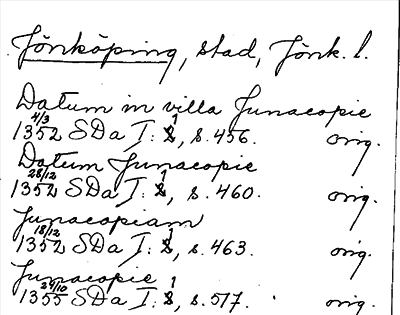 Jönköping, stad, Jönk. l.
Datum in villa Junacopie
1352 4/3 SDa I: 1, s. 456. orig.
Datum Junacopie
1352 28/12 SDa I: 1, s. 460. orig.
Junacopiam
1352 18/12 SDa I: 1, s. 463. orig.
Junacopie
1355 24/10 SDa I: 1, s. 517. orig.